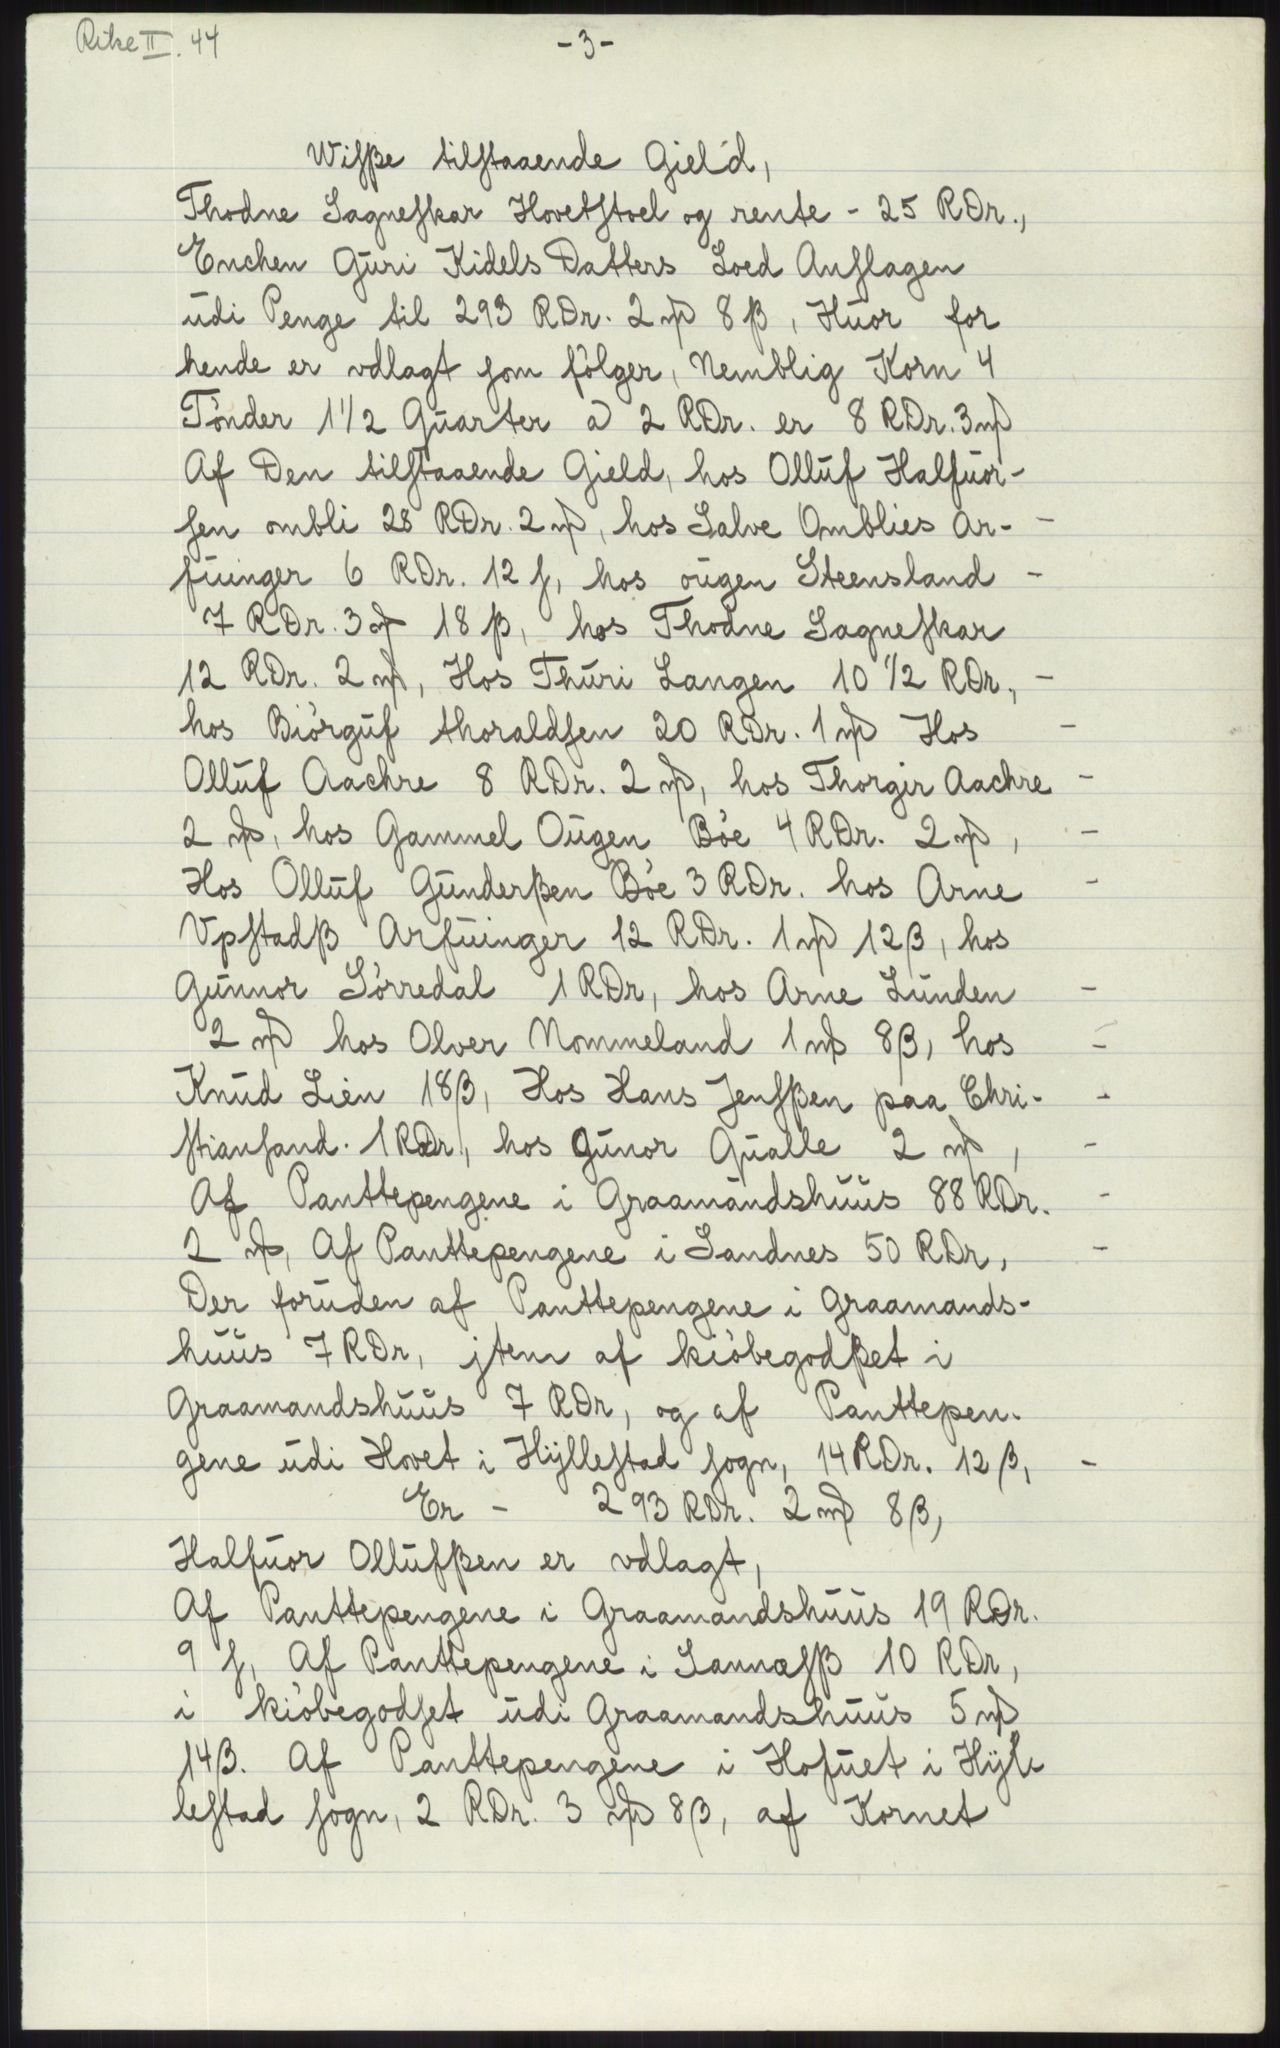 Rike II. 44
-3-
Wisße tilstaaende Gield,
Thodne Sagneskar Hovetstoel og rente - 25 RDr.,
Enchen Guri Kidels Datters Loed Anslagen
udi Penge til 293 RDr. 2 mꝑ 8 β, Huor for
hende er vdlagt som følger, Nemblig Korn 4
Tønder 1 1/2 Quarter a 2 RDr. er 8 RDr. 3 mꝑ
Af Den tilstaaende Gield, hos Olluf Halfuor-
sen ombli 28 RDr. 2 mꝑ, hos Salve Omblies ar- -
fuinger 6 RDr. 12 s, hos ougen Steensland -
7 RDr. 3 mꝑ 18 β, hos Thodne Sagneskar
12 RDr. 2 mꝑ, Hos Thuri Langen 10 1/2 RDr., -
hos Biørguf thoraldsen 20 RDr. 1 mꝑ Hos -
Olluf Aachre 8 RDr. 2 mꝑ, hos Thorgir Aachre -
2 mꝑ, hos Gammel Ougen Bøe 4 RDr. 2 mꝑ, -
Hos Olluf Gunderßen Bøe 3 RDr. hos Arne -
Vpstadß Arfuinger 12 RDr. 1 mꝑ 12 β, hos
Gunnor Sørredal 1 RDr, hos Arne Lunden -
2 mꝑ hos Olver Nommeland 1 mꝑ 8 β, hos -
Knud Lien 18 β, Hos Hans Jensßen paa Chri- -
stiansand. 1 RDr, hos Gunor Qualle 2 mꝑ, -
Af Panttepengene i Graamandshuus 88 RDr. -
2 mꝑ, Af Panttepengene i Sandnes 50 RDr, -
Der foruden af Panttepengene i Graamands-
huus 7 RDr, jtem af kiøbegodßet i
Graamandshuus 7 RDr, og af Panttepen-
gene udi Hovet i Hÿllestad sogn, 14 RDr. 12 β, -
Er - 293 RDr. 2 mꝑ 8 β,
Halfuor Ollufßen er vdlagt,
Af Panttepengene i Graamandshuus 19 RDr.
9 s, Af Panttepengene i Sannæsß 10 RDr,
i kiøbegodset udi Graamandshuus 5 mꝑ
14 β. Af Panttepengene i Hofuet i Hÿl-
lestad sogn, 2 RDr. 3 mꝑ 8 β, af Kornet